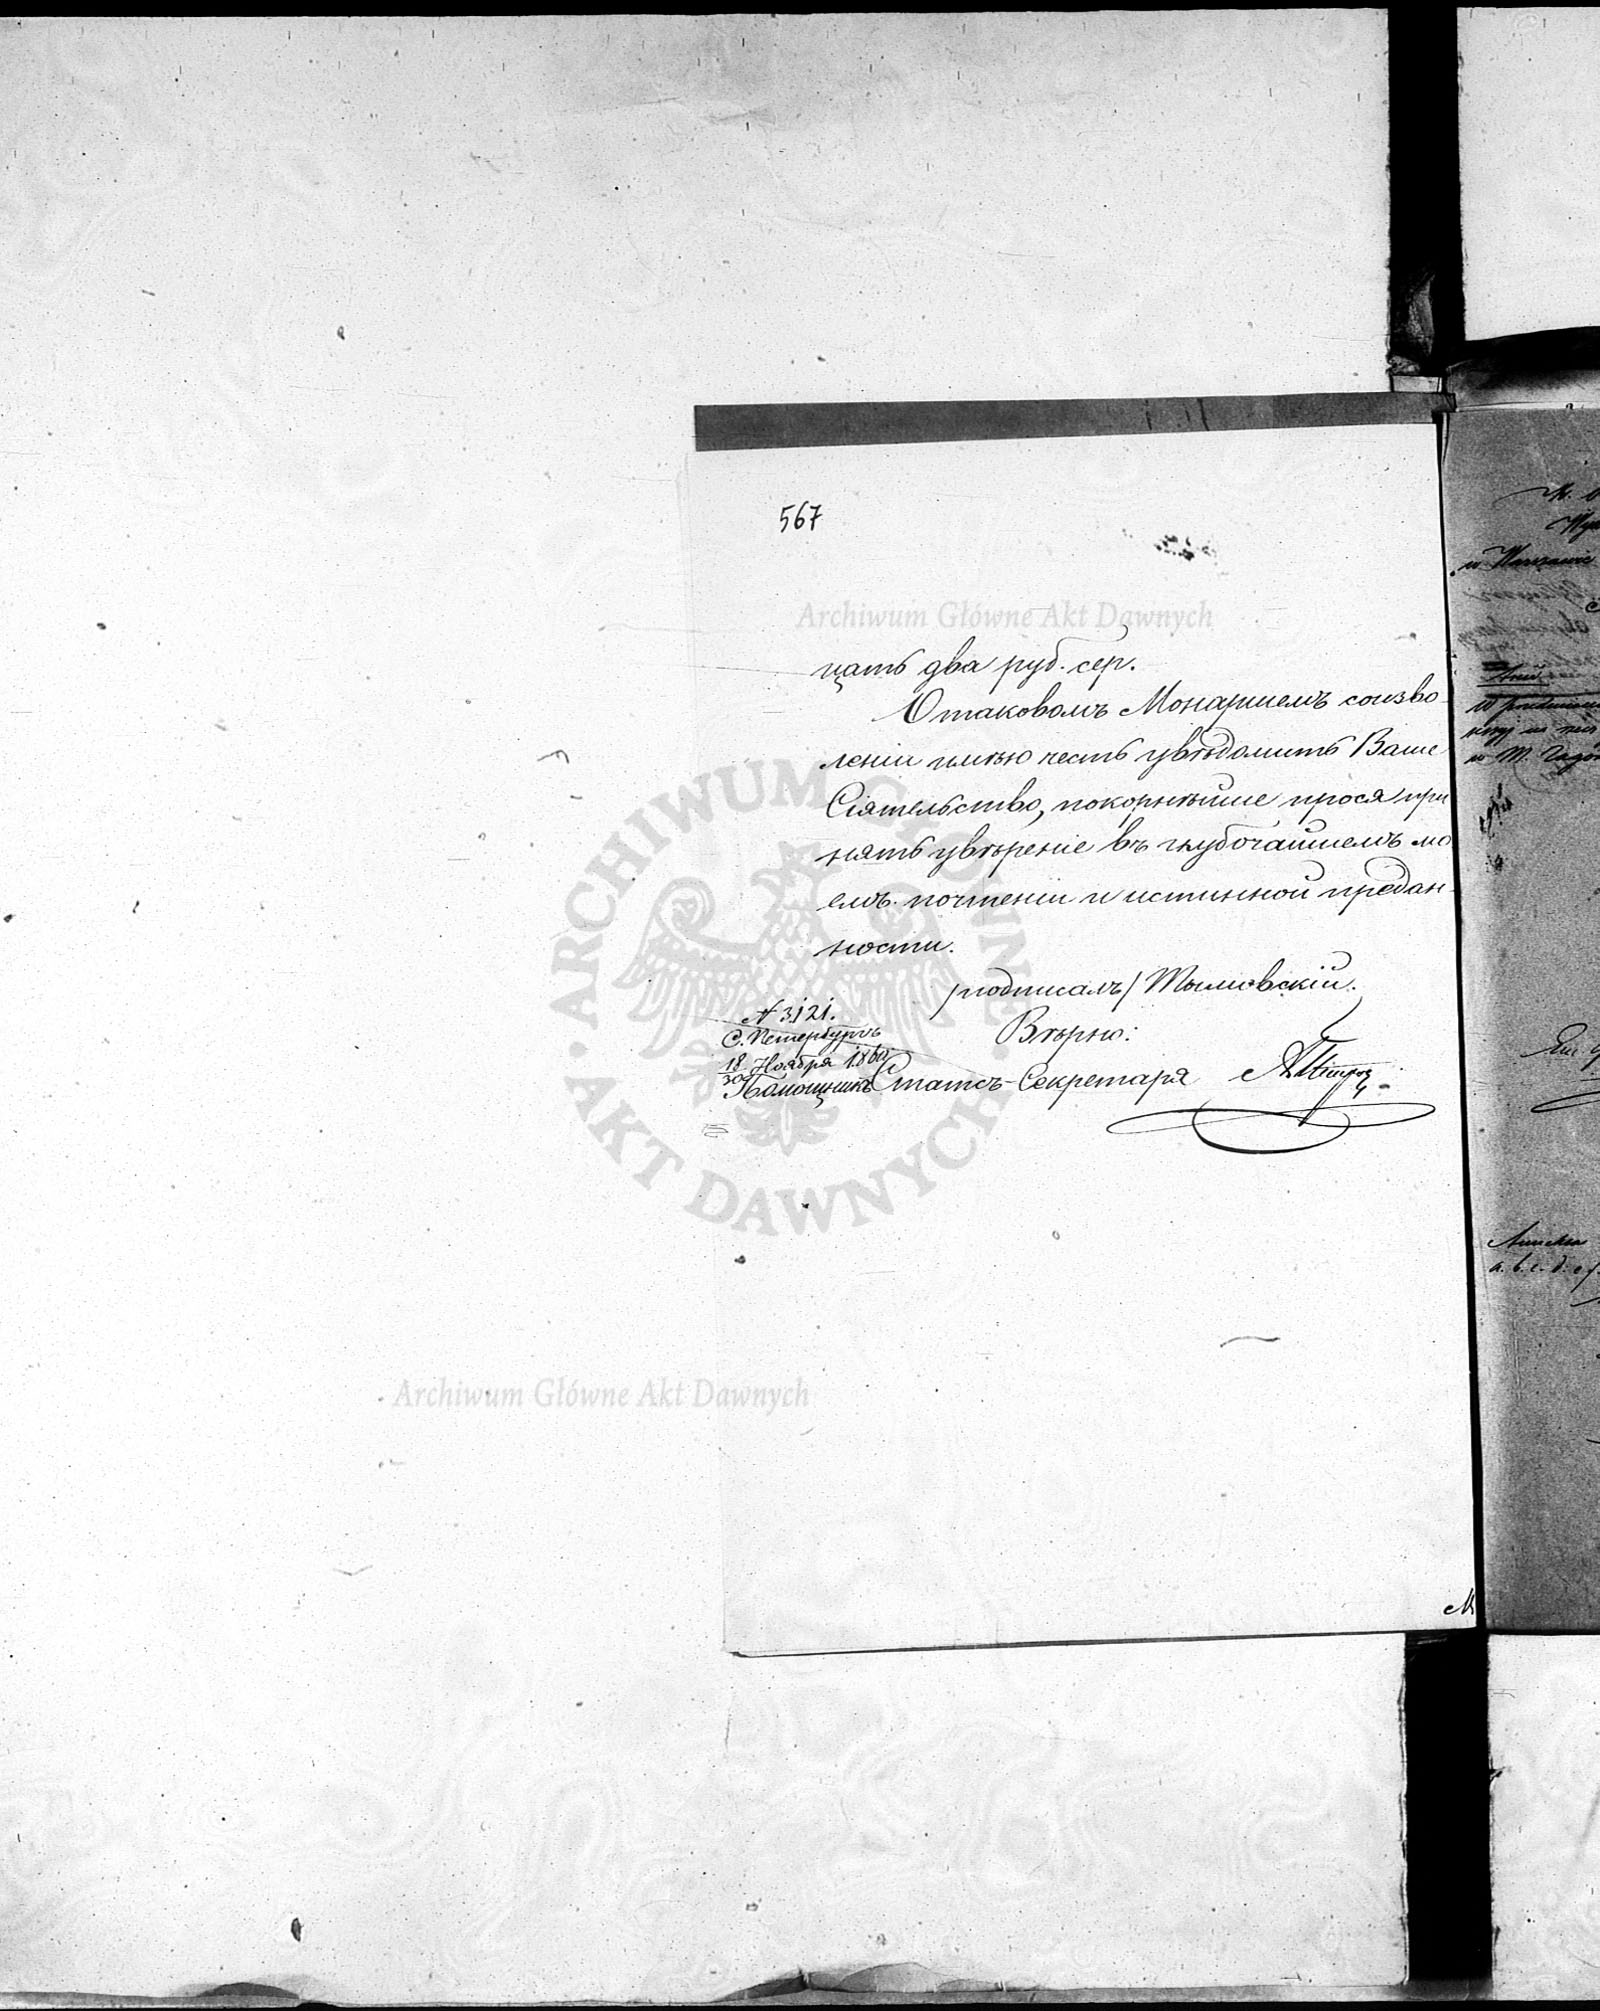 567
Archiwum Główne Akt Dawnych
цать два руб. сер.
О таковомъ Монаршемъ соизво-
леніи имѣю честь увѣдомить Ваше
Сіятельство, покорнѣйше прося при
нять увѣреніе въ глубочайшемъ мо
емъ почтеніи и истинной предан-
ности.
/подписалъ/ Тымовскій.
N 3121.
С. Петербургъ
18/30 Ноября 186
Вѣрно:
Помощникъ Статсъ-Секретаря
ARCHIWUM GŁÓWNE
AKT DAWNYCH
Archiwum Główne Akt Dawnych
w Warszawie
a. b. c. d. e f.